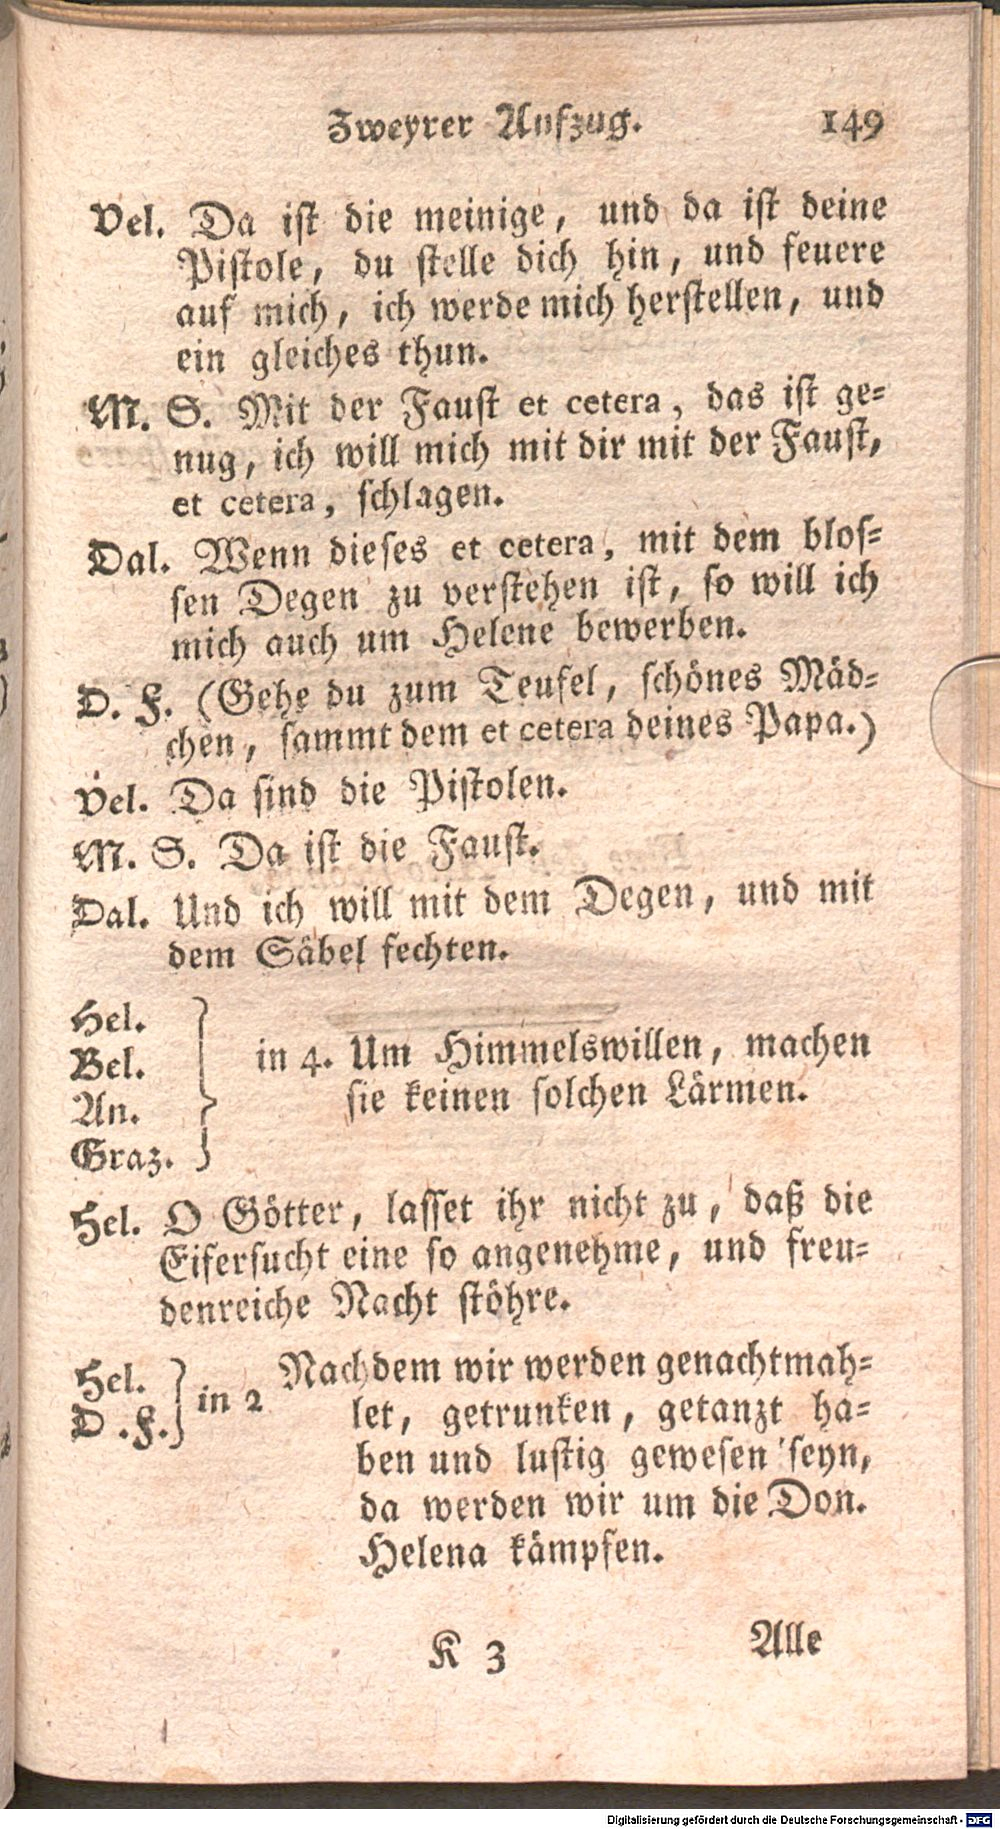 Zweyrer Aufzug. 149
Vel. Da ist die meinige, und da ist deine
Pistole, du stelle dich hin, und feuere
auf mich, ich werde mich herstellen, und
ein gleiches thun.
M. S. Mit der Faust et cetera, das ist ge-
nug, ich will mich mit dir mit der Faust,
et cetera, schlagen.
Dal. Wenn dieses et cetera, mit dem blos-
sen Degen zu verstehen ist, so will ich
mich auch um Helene bewerben.
D. F. (Gehe du zum Teufel, schönes Mäd-
chen, sammt dem et cetera deines Papa.)
Vel. Da sind die Pistolen.
M. S. Da ist die Faust.
Dal. Und ich will mit dem Degen, und mit
dem Säbel fechten.
Hel.
Bel.
An.
Graz.
in 4. Um Himmelswillen, machen
sie keinen solchen Lärmen.
Hel. O Götter, lasset ihr nicht zu, daß die
Eifersucht eine so angenehme, und freu-
denreiche Nacht stöhre.
Hel.
D .F.
in 2 Nachdem wir werden genachtmah-
let, getrunken, getanzt ha-
ben und lustig gewesen seyn,
da werden wir um die Don.
Helena kämpfen.
K 3 Alle
Digitalisierung gefördert durch die Deutsche Forschungsgemeinschaft - DFG